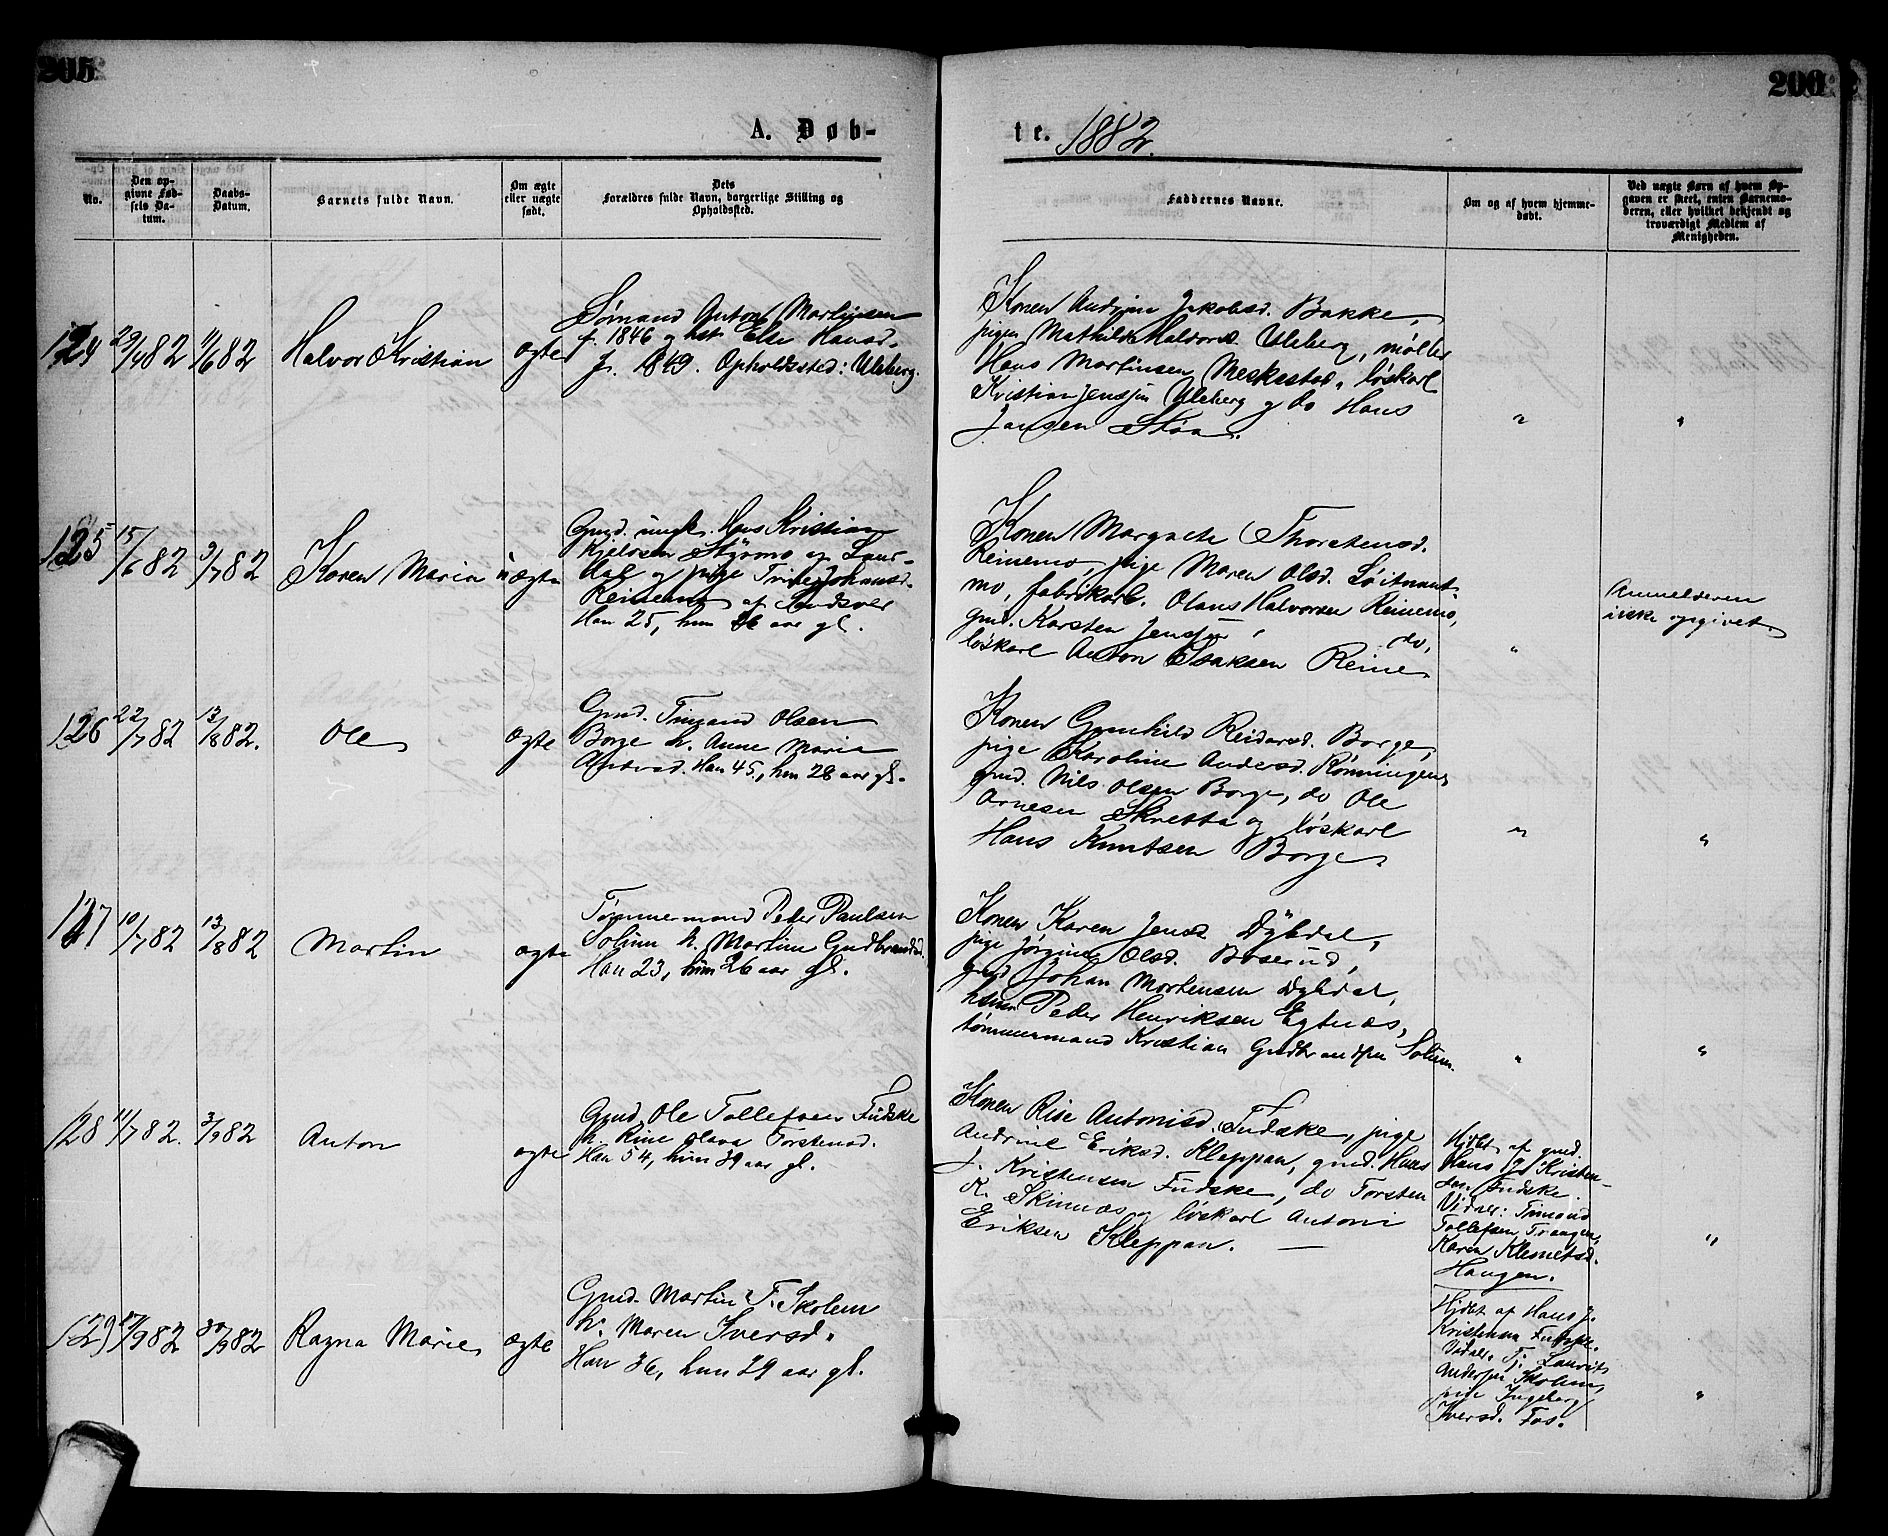 205
206
A. Døb-
te. 1882.
No.
Den op-
givne Fød-
sels Da-
tum.
Daabs-
Datum.
Barnets fulde Navn.
Om ægte
eller uægte
født.
Dets
Forældres fulde Navn, borgerlige Stilling og
Opholdssted.
Faddernes Navne.
Om og af hvem hjemme-
døbt.
Ved uægte Børn af hvem Op-
gaven er skeet, enten Barnemo-
deren, eller hvilket bekjendt og
troværdigt Medlem af
Menigheden.
124 29/4 82 11/6 82 Halvor Kristian ægte
Sømand Anton Martinsen
f. 1846 og hst Else Hansd.
f. 1849. Opholdssted: Uleberg.
Konen Andrine Jakobsd. Bakke,
pigen Mathilde Halvorsd. Uleberg, møller
Hans Martinsen Meskestad, løskarl
Kristian Jenssen Uleberg og do Hans
Jansen Støa.
"
"
125 15/6 82 9/7 82 Karen Maria uægte
Gmd. ungk. Hans Kristian
Kjeldsen Styrmo af Laur-
dal og pige Trine Johannesd.
Reinemo af Sandsvær
Han 25, hun 26 aar gl.
Konen Margrete Thorstensd.
Reinemo, pige Maren Olsd. Løitnant-
mo, fabrikarb. Olaus Halvorsen Reinemo,
gmd. Karsten Jenssen do,
løskarl Anton Isaksen Reine
"
Anmelderen
ikke opgivet
126 22/7 82 13/8 82. Ole ægte
Gmd. Timand Olsen
Borge h. Anne Maria
Andersd. Han 45, hun 28 aar gl.
Konen Gunhild Reidarsd. Borge,
pige Karoline Andersd. Rønningen,
gmd. Nils Olsen Borge, do Ole
Arnesen Skretta og løskarl
Hans Knutsen Borge.
"
"
127 10/7 82 13/8 82 Martin ægte
Tømmermand Peder Paulsen
Solum h. Martine Gudbrandsd.
Han 23, hun 26 aar gl.
Konen Karen Jensd. Dybdal,
pige Jørgine Olsd. Boserud,
gmd. Johan Mortensen Dybdal,
husm. Peder Henriksen Egtnæs,
tømmermand Kristian Gudbrandsen Solum.
"
"
128 11/7 82. 3/9 82 Anton ægte
Gmd. Ole Tollefsen Fudske
h. Rine Olava Torstensd.
Han 54, hun 39 aar gl.
Konen Rise Antonisd. Fudske, pige
Andrine Eriksd. Kleppan, gmd. Hans
J. Kristensen Fudske, do Torsten
K. Skinnæs og løskarl Antoni
Eriksen Kleppan. —
Hjdbt af gmd.
Hans J. Kristen-
sen Fudske.
Vidner: Timand
Tollefsen Traagen,
Karen Klemetsd.
Haugen.
"
129 17/9 82 30/9 82 Ragna Marie ægte
Gmd. Martin T. Skolem
h. Maren Iversd.
Han 36, hun 29 aar gl.
Hjdbt af Hans J.
Kristensen Fudske.
Vidner: Tj. Laurits
Andersen Skolem,
pige Ingeborg
Iversd. Fos.
"